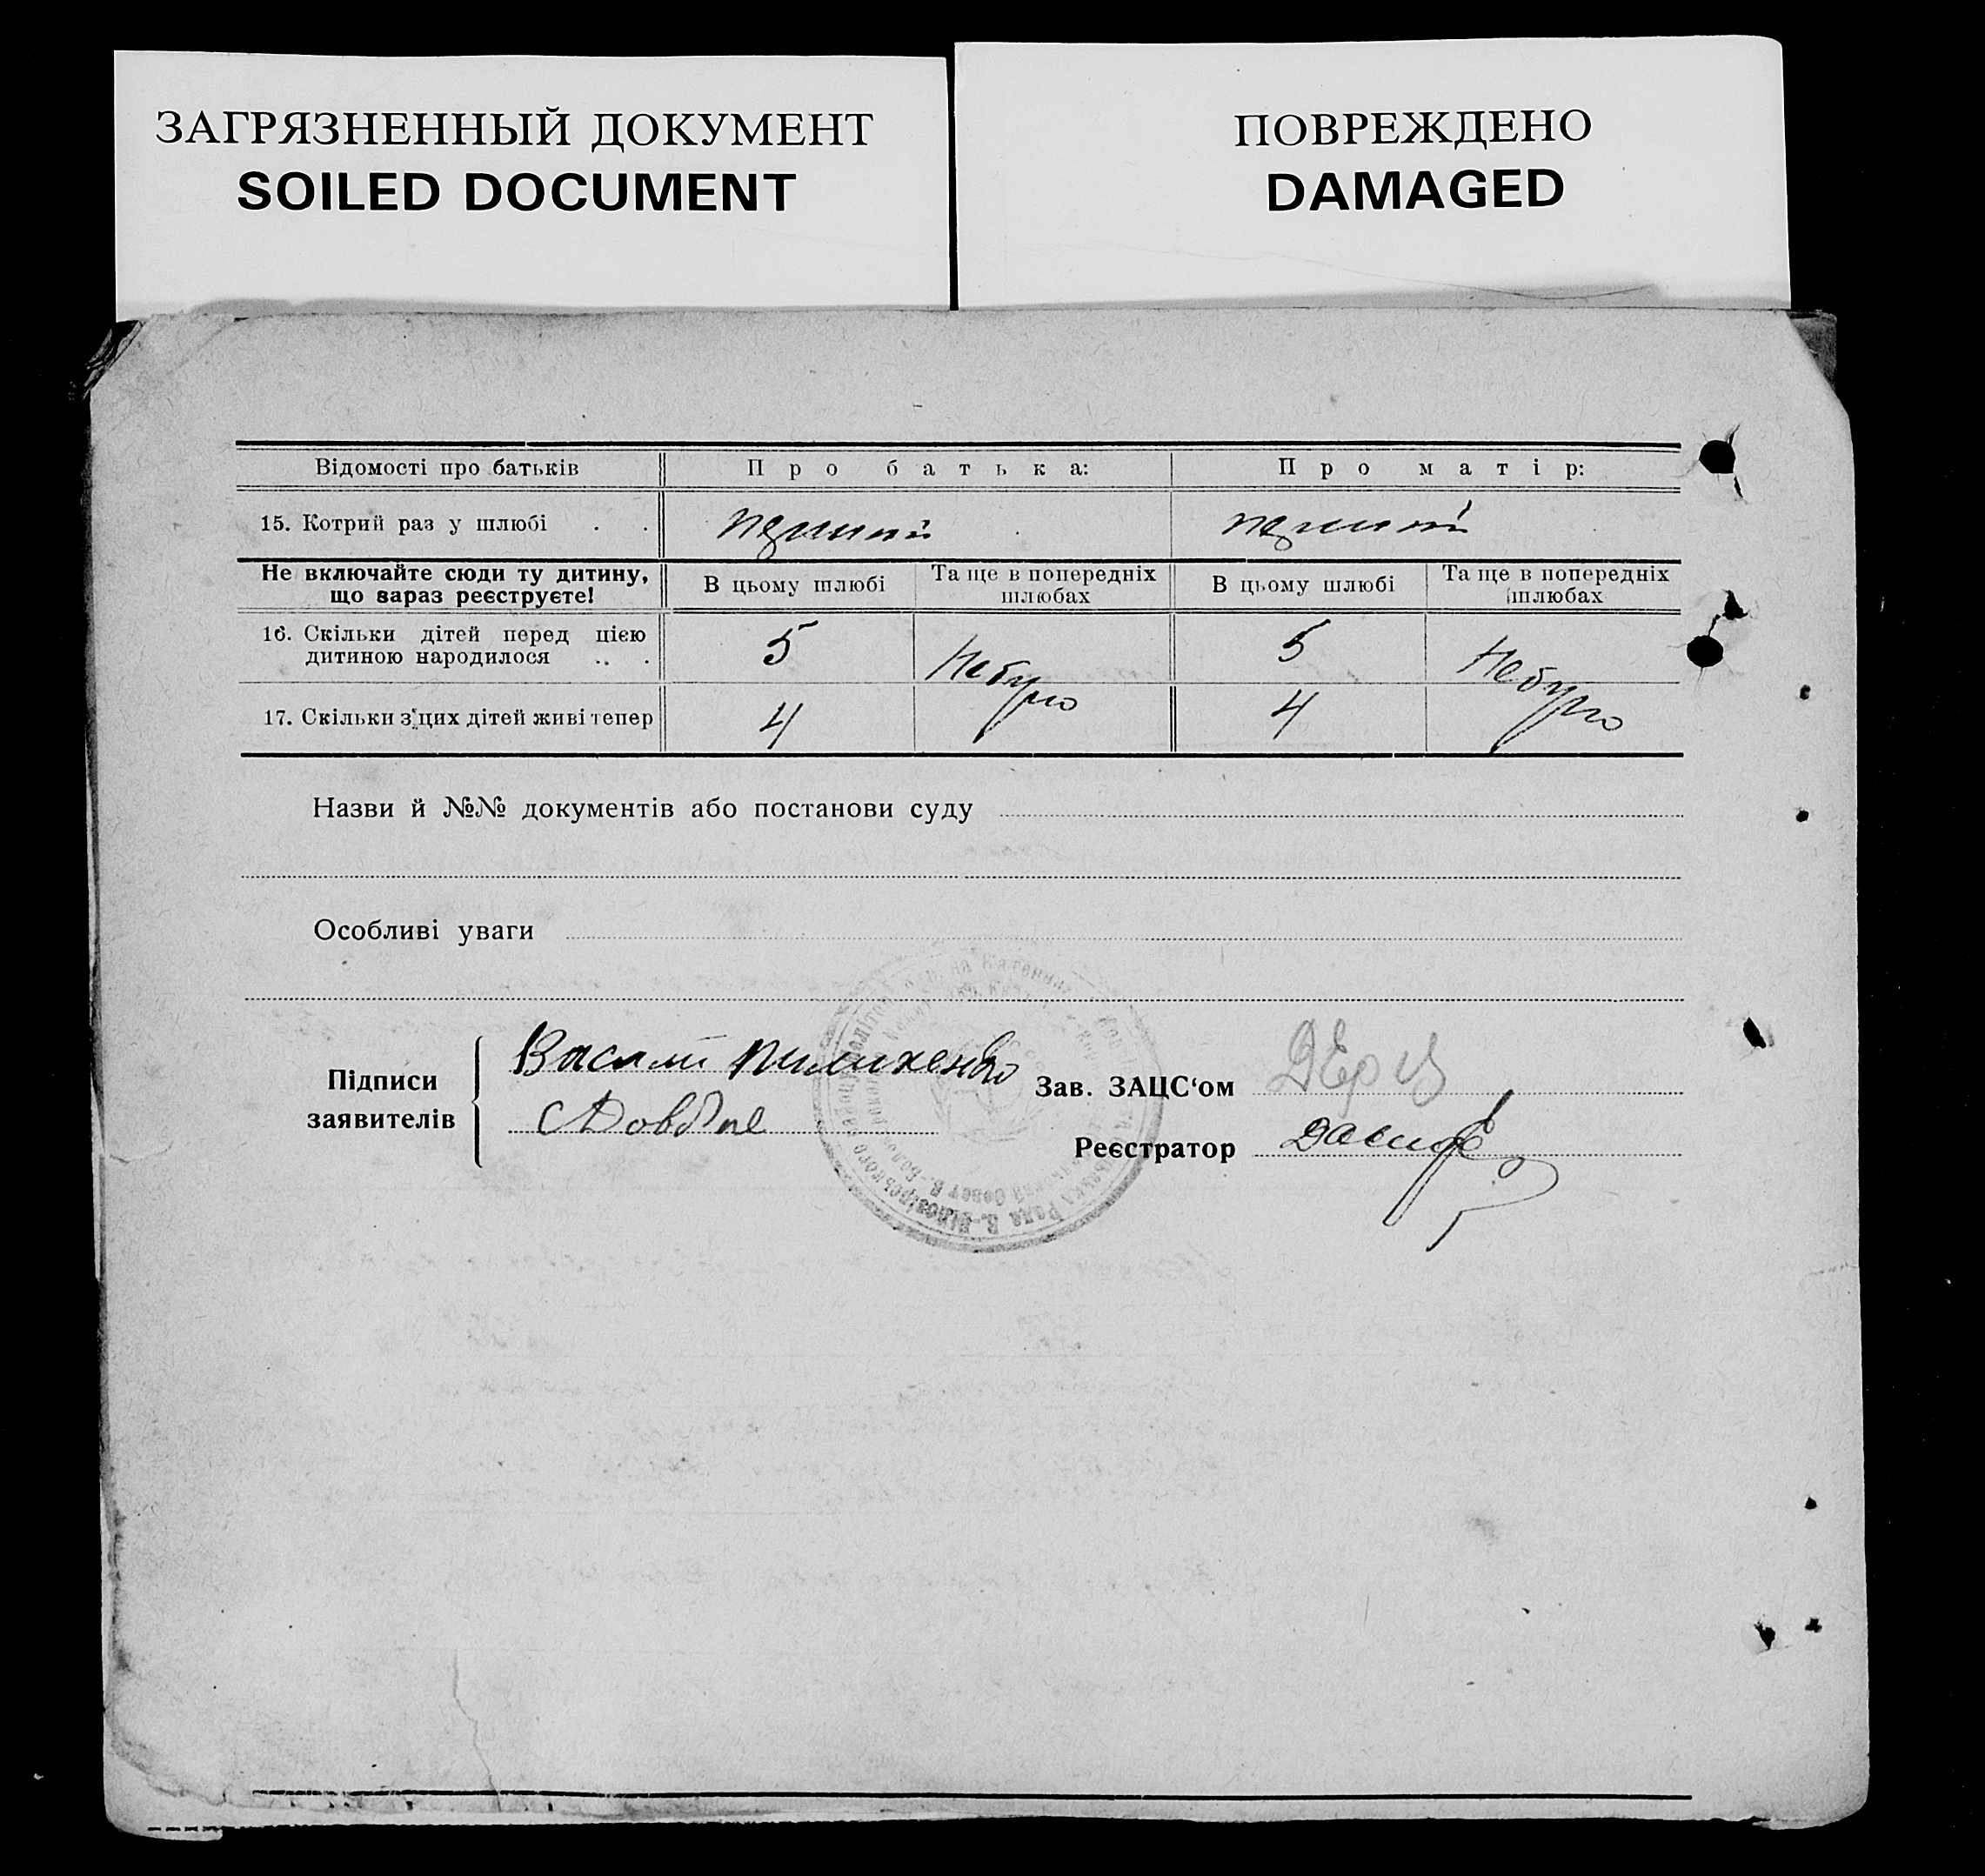 ЗАГРЯЗНЕННЫЙ ДОКУМЕНТ
SOILED DOCUMENT
ПОВРЕЖДЕНО
DAMAGED
Відомості про батьків Про батька: Про матір:
15. Котрий раз у шлюбі . . перший перший
Не включайте сюди ту дитину, що зараз реєструєте! В цьому шлюбі Та ще в попередніх шлюбах В цьому шлюбі Та ще в попередніх шлюбах
16. Скільки дітей перед цією
дитиною народилося .. . 5 Небуло 5 Небуло
17. Скільки з цих дітей живі тепер 4 4
Назви й №№ документів або постанови суду
Особливі уваги
Підписи
заявителів
Василь Пилипенко
Зав. ЗАЦС‘ом
Реєстратор